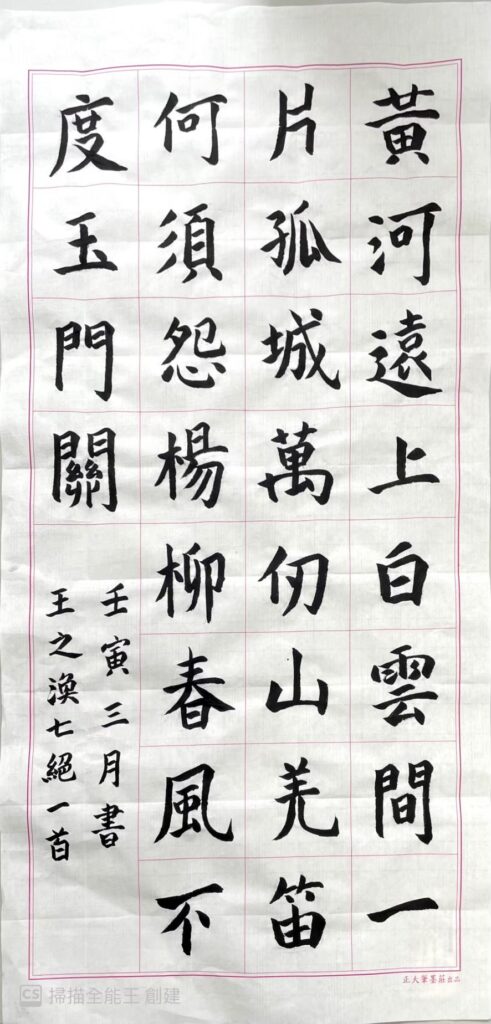 黃河遠上白雲間一
片孤城萬仞山羌笛
何須怨楊柳春風不
度玉門關
壬寅三月書
王之渙七絕一首
正大筆墨莊出品
CS 掃描全能王 創建